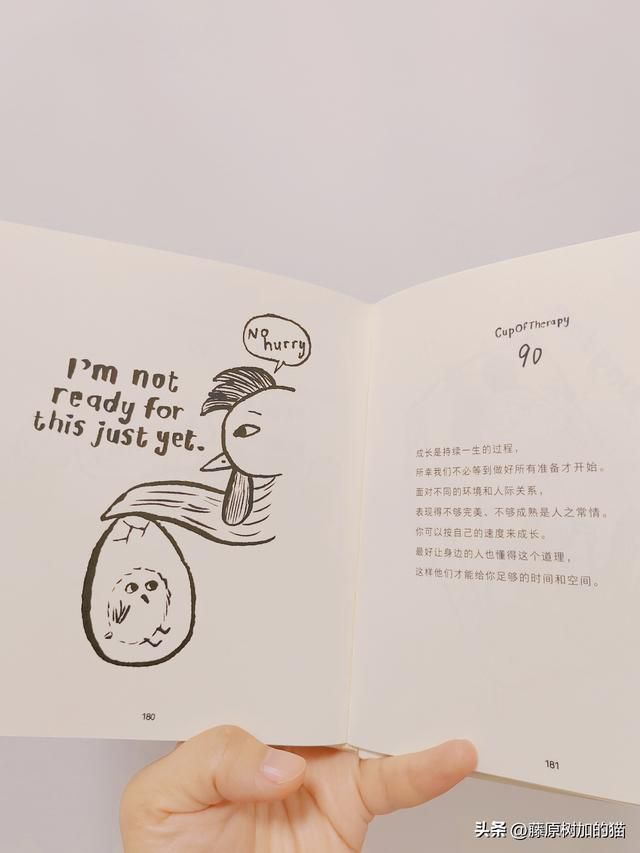 No
hurry
I'm not
ready for
this just yet.
180
CupOfTherapy
90
成长是持续一生的过程，
所幸我们不必等到做好所有准备才开始。
面对不同的环境和人际关系，
表现得不够完美、不够成熟是人之常情。
你可以按自己的速度来成长。
最好让身边的人也懂得这个道理，
这样他们才能给你足够的时间和空间。
181
头条 @藤原树加的猫